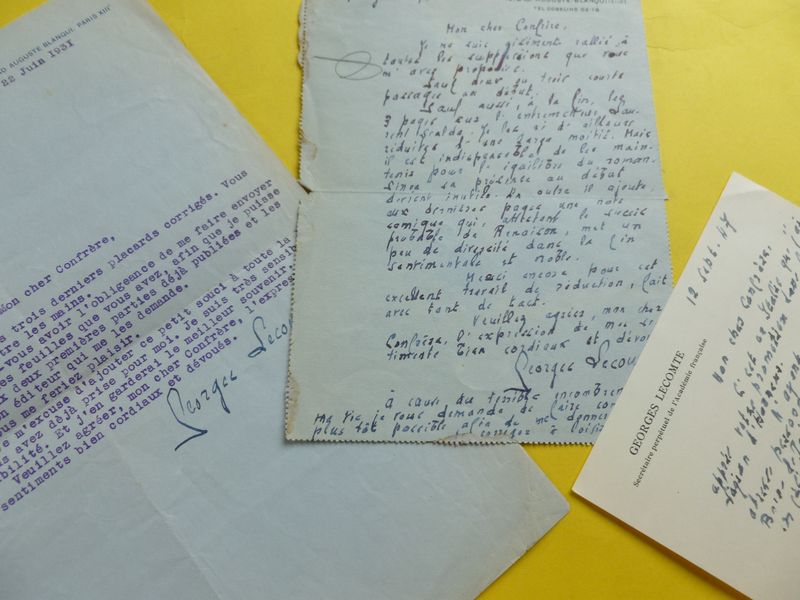 AUGUSTE BLANQUI, PARIS XIIIe
22 Juin 1931
Mon cher Confrère,
trois derniers placards corrigés. Vous
les mains.
vous avoir l'obligeance de me faire envoyer
feuilles que vous avez, afin que je puisse
deux premières parties déjà publiées et les
éditeur qui me les demande.
me feriez plaisir.
m'excuse d'ajouter ce petit souci à toute la
avez déjà prise pour moi. Je suis très sensib
bilité. Et j'en garderai le meilleur souvenir.
Veuillez agréer, mon cher Confrère, l'expres
sentiments bien cordiaux et dévoués.
Georges Leco
AUGUSTE-BLANQUI
TEL. GOBELINS
Mon cher Confrère,
Je me suis aisément rallié à
toutes les suppressions que vous
m'avez proposées.
Sauf deux ou trois courts
passages au début.
Sauf aussi, à la fin, les
3 pages sur l'entremetteuse
Je les ai d'ailleurs
réduites d'une large moitié. Mais
il est indispensable de les main-
tenir pour l'équilibre du roman.
Sinon sa présence au début
devient inutile. En outre il ajoute,
aux dernières pages une note
comique qui, attestant le succès
probable de Renaison, met un
peu de diversité dans la fin
sentimentale et noble.
Merci encore pour cet
excellent travail de réduction, fait
avec tant de tact.
Veuillez agréer, mon cher
Confrère, l'expression de mes se
timents bien cordiaux et dévou
Georges Lecou
à cause du terrible encombrem
ma vie, je vous demande de faire com
plus tôt possible afin de me donner
corriger à loisir
12 Sept. 47
GEORGES LECOMTE
Secrétaire perpétuel de l'Académie française
Mon cher Confrère,
C'est ce
après votre promotion dans
légion d'honneur.